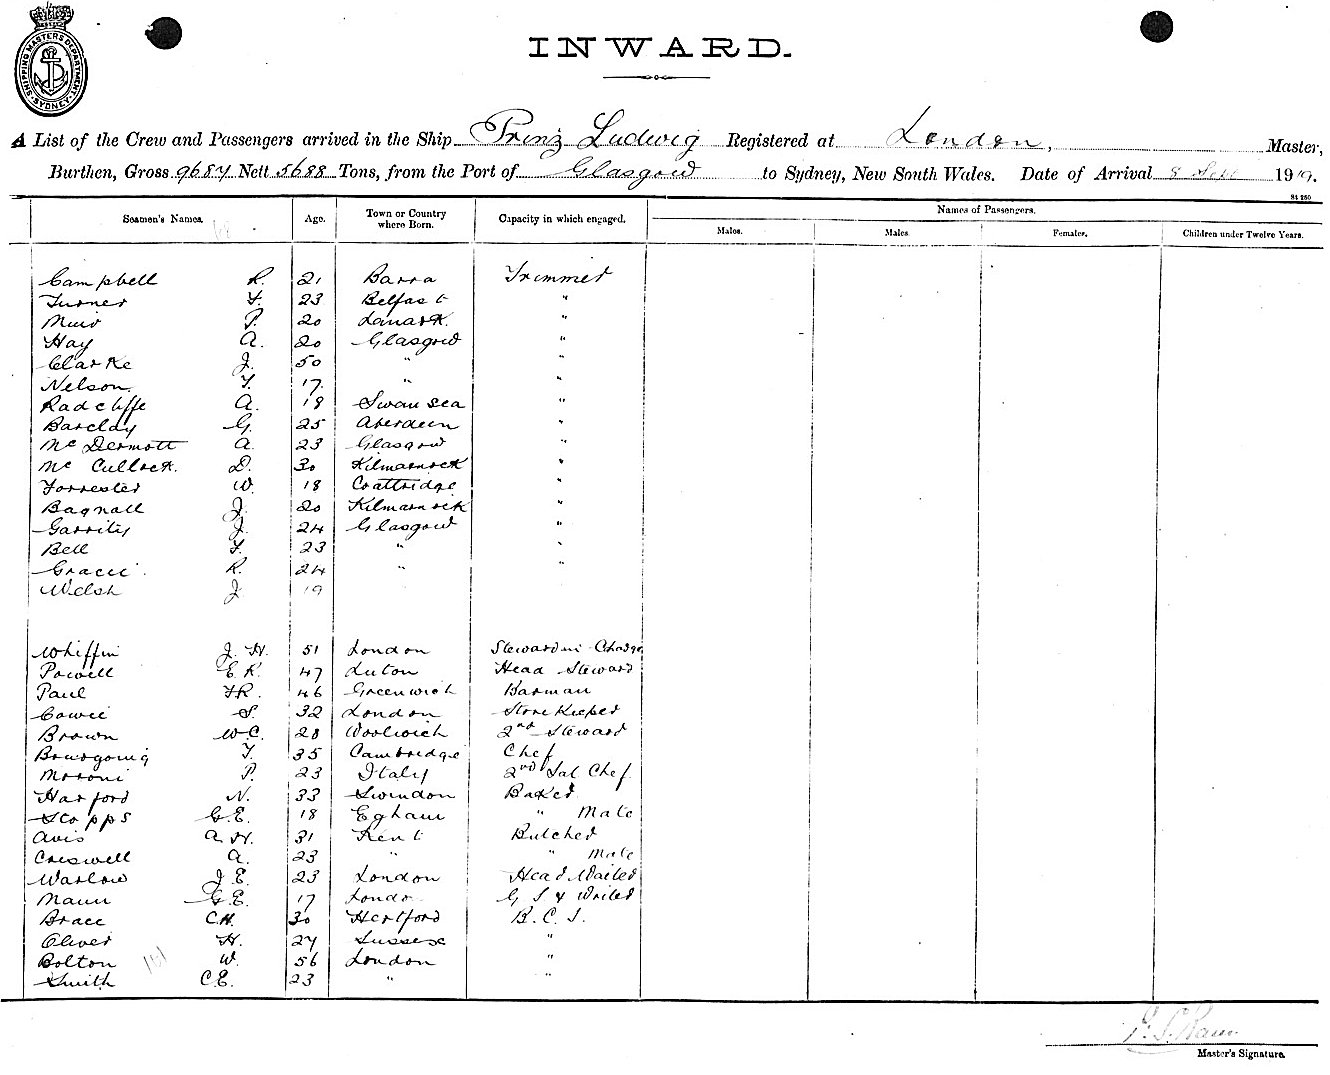 SHIPPING MASTERS DEPARTMENT. SYDNEY
INWARD.
A List of the Crew and Passengers arrived in the Ship Prinz Ludwig Registered at London, Master,
Burthen, Gross 9687 Nett 5688 Tons, from the Port of Glasgow to Sydney, New South Wales. Date of Arrival 8 1919.
Seamen's Names. Age. Town or Country where Born. Capacity in which engaged. Names of Passengers.
Males. Males Females. Children under Twelve Years.
Campbell R. 21 Barra Trimmer
Turner F. 23 Belfast "
Muir P. 20 Lanark. "
Hay A. 20 Glasgow "
Clarke J. 50 " "
Nelson. F. 17. " "
Radcliffe A. 18 Swansea "
Barclay G. 25 Aberdeen "
McDermott A. 23 Glasgow "
McCulloch. D. 30 Kilmarnock "
Forrester W. 18 Coatbridge "
Bagnall J. 20 Kilmarnock "
Garrity J. 24 Glasgow "
Bell F. 23 " "
Gracie. R. 24 " "
Welsh J. 19
Whiffin J. H. 51 London Steward in Charge
Powell E R. 47 Luton Head Steward
Paul FR. 46 Greenwich Barman
Cowie S. 32 London Store Keeper
Brown W.C. 28 Woolwich 2nd Steward
F. 35 Cambridge Chef
Moroni P. 23 Italy 2nd Sal Chef
Harford N. 33 Swindon Baker
Stopps G.E. 18 Egham " Mate
Avis A H. 31 Kent Butcher
Creswell A. 23 " " Mate
Warlow J E. 23 London Head Waiter
Mann G.E. 17 London G S & Writer
Brace C.H. 30 Hertford B.C.S.
Oliver H. 27 Sussex "
Bolton W. 56 London "
Smith C.E. 23 "
Master's Signature.